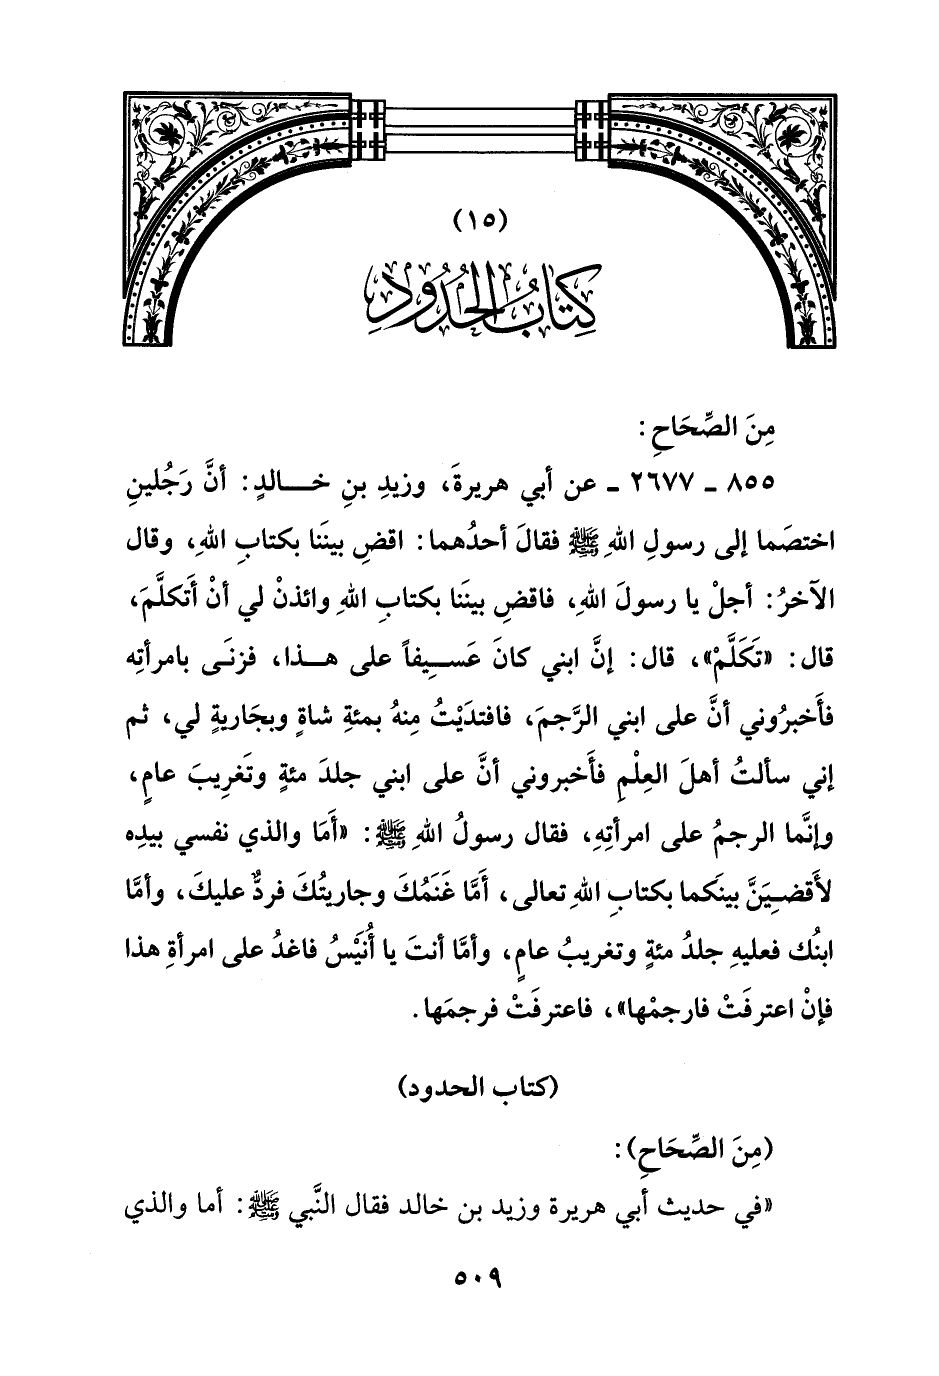 (١٥)
كِتَابُ الحُدُودِ
مِنَ الصِّحَاحِ:
٨٥٥ ـ ٢٦٧٧ ـ عن أبي هريرةَ، وزيدِ بنِ خـالدٍ: أنَّ رَجُلينِ
اختصَما إلى رسولِ اللهِ ﷺ فقالَ أحدُهما: اقضِ بينَنا بكتابِ اللهِ، وقال
الآخرُ: أجلْ يا رسولَ اللهِ، فاقضِ بينَنا بكتابِ اللهِ وائذنْ لي أنْ أَتكلَّمَ،
قال: «تَكَلَّمْ»، قال: إنَّ ابني كانَ عَسـِيفاً على هـذا، فزنَى بامرأتِه
فأَخبرُوني أنَّ على ابني الرَّجمَ، فافتدَيْتُ مِنهُ بمئةِ شاةٍ وبجَاريةٍ لي، ثم
إني سألتُ أهلَ العِلْمِ فأَخبروني أنَّ على ابني جلدَ مئةٍ وتَغرِيبَ عامٍ،
وإنَّما الرجمُ على امرأتِهِ، فقال رسولُ اللهِ ﷺ: «أَمَا والذي نفسي بيدِه
لأَقضـِيَنَّ بينَكما بكتابِ اللهِ تعالى، أَمَّا غَنَمُكَ وجاريتُكَ فردٌّ عليكَ، وأمَّا
ابنُك فعليهِ جلدُ مئةٍ وتغريبُ عامٍ، وأمَّا أنتَ يا أُنَيْسُ فاغدُ على امرأةِ هذا
فإنْ اعترفَتْ فارجمْها»، فاعترفَتْ فرجمَها.
(كتاب الحدود)
(مِنَ الصِّحَاحِ):
«في حديث أبي هريرة وزيد بن خالد فقال النَّبي ﷺ: أما والذي
٥٠٩